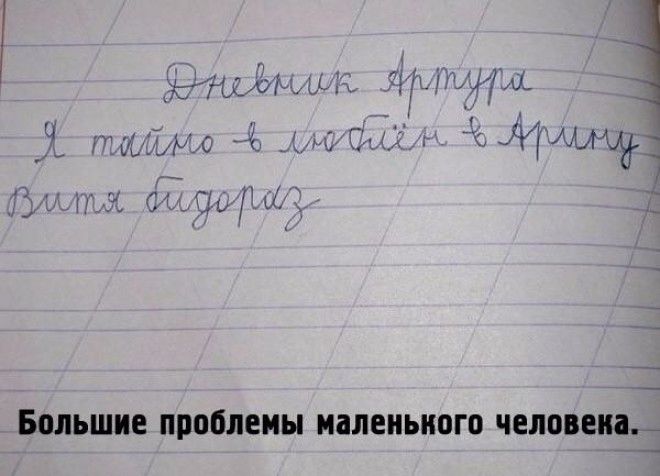 Дневник Артура
Я тайно в люблён в Арину
Витя бидораз
Большие проблемы маленького человека.